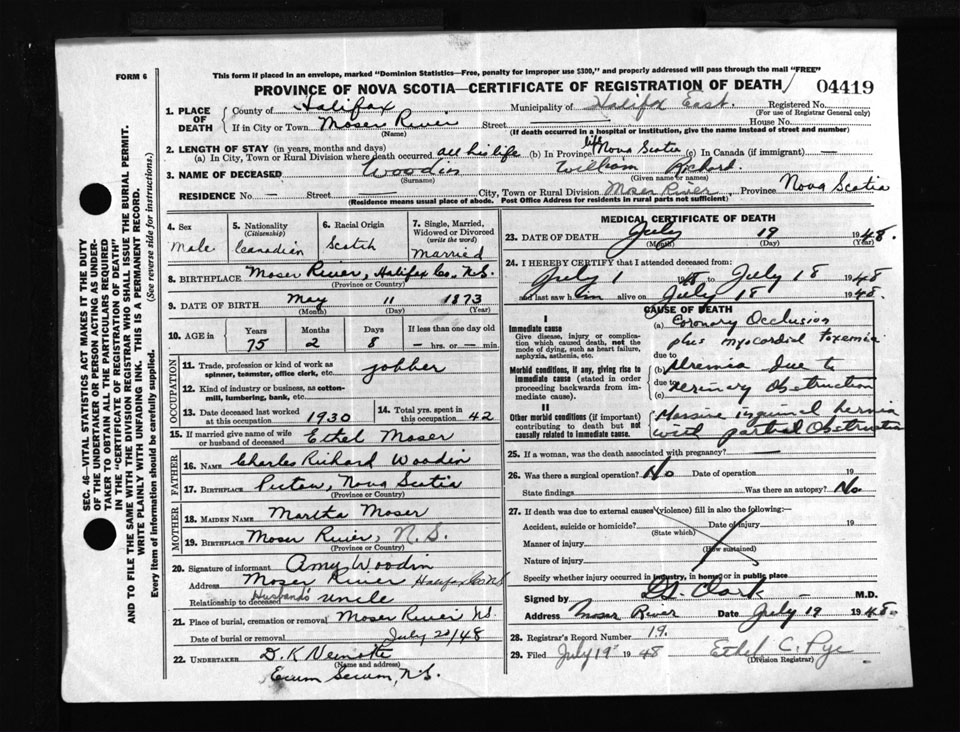 FORM 6
This form if placed in an envelope, marked "Dominion Statistics—Free, penalty for improper use $300," and properly addressed will pass through the mail "FREE"
PROVINCE OF NOVA SCOTIA—CERTIFICATE OF REGISTRATION OF DEATH
04419
1. PLACE OF DEATH County of Halifax Municipality of Halifax East. Registered No.
(For use of Registrar General only)
If in City or Town Moser River Street House No.
(Name) (If death occurred in a hospital or institution, give the name instead of street and number)
2. LENGTH OF STAY (in years, months and days)
(a) In City, Town or Rural Division where death occurred all his life (b) In Province life Nova Scotia (c) In Canada (if immigrant) —
3. NAME OF DECEASED Woodin William Richard.
(Surname) (Given name or names)
RESIDENCE No. — Street City, Town or Rural Division Moser River, Province Nova Scotia
(Residence means usual place of abode, Post Office Address for residents in rural parts not sufficient)
4. Sex 5. Nationality (Citizenship) 6. Racial Origin 7. Single, Married, Widowed or Divorced (write the word)
Male Canadian Scotch Married
8. BIRTHPLACE Moser River, Halifax Co., N.S.
(Province or Country)
9. DATE OF BIRTH May 11 1873
(Month) (Day) (Year)
10. AGE in Years Months Days If less than one day old
75 2 8 — hrs. or — min.
OCCUPATION
11. Trade, profession or kind of work as spinner, teamster, office clerk, etc. jobber
12. Kind of industry or business, as cotton-mill, lumbering, bank, etc.
13. Date deceased last worked at this occupation 1930 14. Total yrs. spent in this occupation 42
15. If married give name of wife or husband of deceased Ethel Moser
FATHER
16. NAME Charles Richard Woodin
17. BIRTHPLACE Pictou, Nova Scotia
(Province or Country)
MOTHER
18. MAIDEN NAME Martha Moser
19. BIRTHPLACE Moser River, N.S.
(Province or Country)
20. Signature of informant Amy Woodin
Address Moser River Halifax Co NS
Relationship to deceased Husband's uncle
21. Place of burial, cremation or removal Moser River NS.
Date of burial or removal July 20/48
22. UNDERTAKER D. K
(Name and address)
Ecum Secum, N.S.
MEDICAL CERTIFICATE OF DEATH
23. DATE OF DEATH July 19 1948.
(Month) (Day) (Year)
24. I HEREBY CERTIFY that I attended deceased from:
July 1 1948 to July 18 1948
and last saw him alive on July 18 1948.
CAUSE OF DEATH
I
Immediate cause
Give disease, injury or complication which caused death, not the mode of dying, such as heart failure, asphyxia, asthenia, etc.
(a) Coronary Occlusion
plus myocardial Toxemia
due to
Morbid conditions, if any, giving rise to immediate cause (stated in order proceeding backwards from immediate cause).
(b) Uremia Due to
due to
(c) Urinary Obstruction
II
Other morbid conditions (if important) contributing to death but not causally related to immediate cause.
Massive inguinal hernia
with partial Obstruction
25. If a woman, was the death associated with pregnancy? —
26. Was there a surgical operation? No Date of operation 19
State findings Was there an autopsy? No
27. If death was due to external causes (violence) fill in also the following:—
Accident, suicide or homicide? Date of injury 19
(State which)
Manner of injury
(How sustained)
Nature of injury
Specify whether injury occurred in industry, in home, or in public place
Signed by Clark M.D.
Address Moser River Date July 19 1948.
28. Registrar's Record Number 19.
29. Filed July 19th 1948 Ethel C. Pye
(Division Registrar)
SEC. 46—VITAL STATISTICS ACT MAKES IT THE DUTY
OF THE UNDERTAKER OR PERSON ACTING AS UNDER-
TAKER TO OBTAIN ALL THE PARTICULARS REQUIRED
IN THE "CERTIFICATE OF REGISTRATION OF DEATH"
AND TO FILE THE SAME WITH THE DIVISION REGISTRAR WHO SHALL ISSUE THE BURIAL PERMIT.
WRITE PLAINLY WITH UNFADING INK. THIS IS A PERMANENT RECORD.
Every item of information should be carefully supplied. (See reverse side for instructions.)